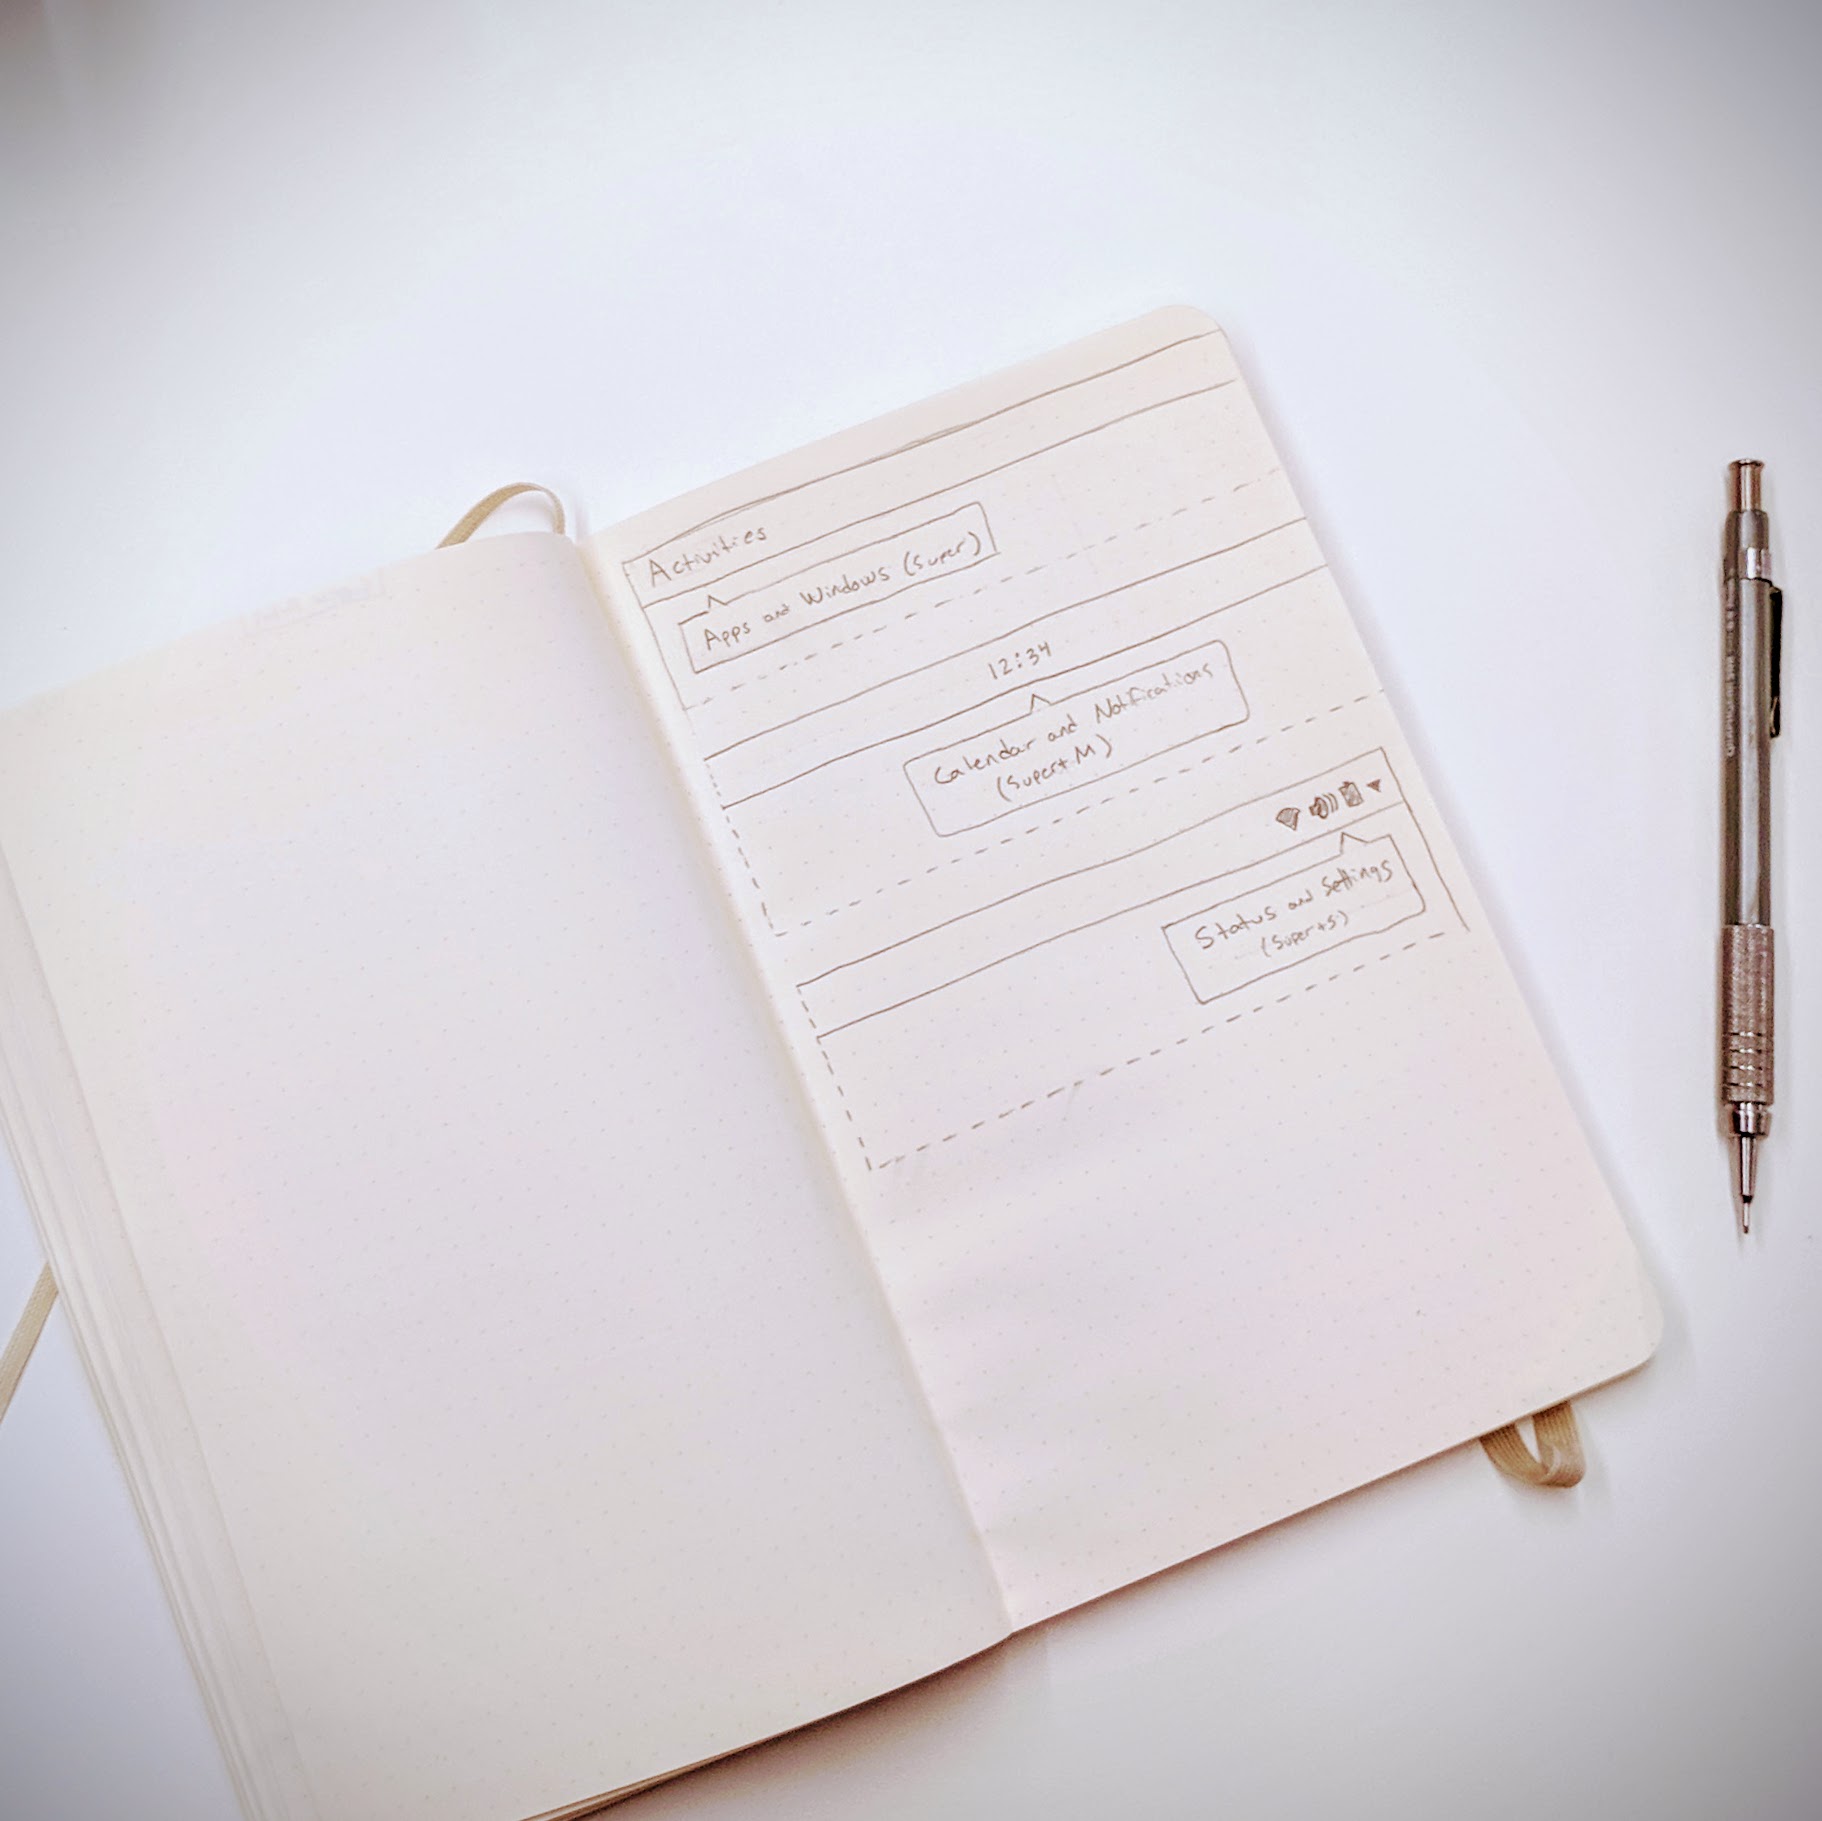 Activities
Apps and Windows (Super)
12:34
Calendar and Notifications
(Super+M)
Status and Settings
(Super+S)